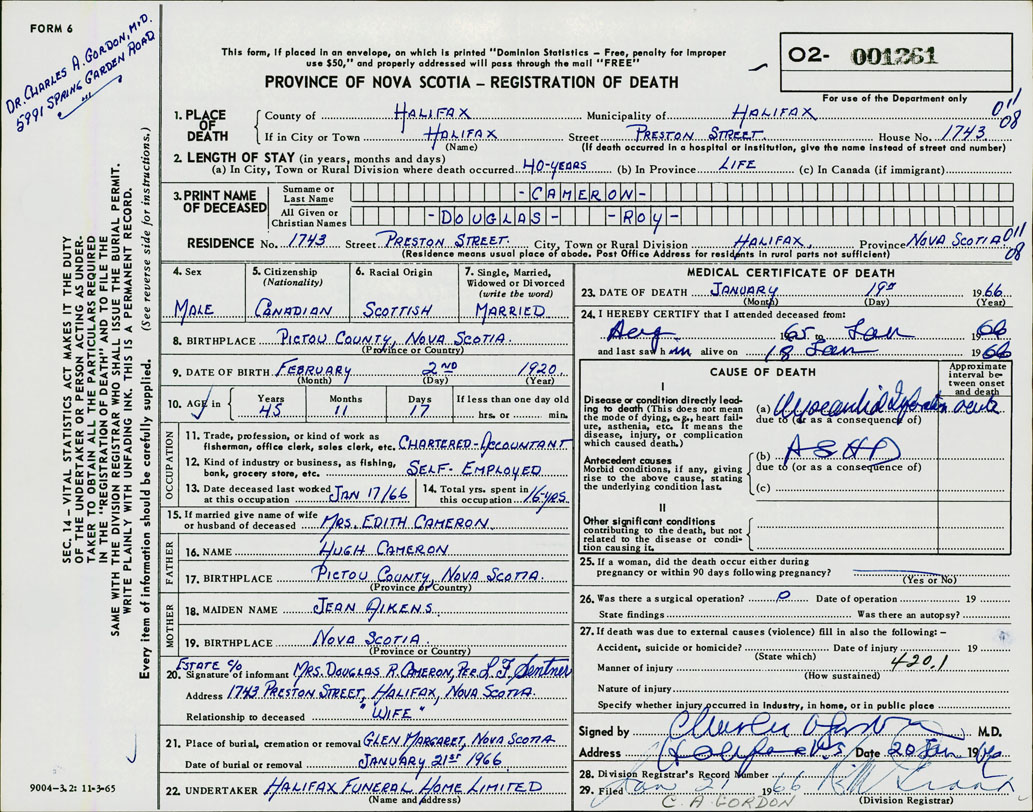 FORM 6
DR. CHARLES A. GORDON, M.D.
5991 SPRING GARDEN ROAD
This form, if placed in an envelope, on which is printed "Dominion Statistics – Free, penalty for improper
use $50," and properly addressed will pass through the mail "FREE"
PROVINCE OF NOVA SCOTIA – REGISTRATION OF DEATH
02- 001261
For use of the Department only
011
08
1. PLACE OF DEATH
County of HALIFAX Municipality of HALIFAX
If in City or Town HALIFAX Street PRESTON STREET. House No. 1743
(Name) (If death occurred in a hospital or institution, give the name instead of street and number)
2. LENGTH OF STAY (in years, months and days)
(a) In City, Town or Rural Division where death occurred 40-YEARS (b) In Province LIFE (c) In Canada (if immigrant)
3. PRINT NAME OF DECEASED
Surname or Last Name -CAMERON-
All Given or Christian Names -DOUGLAS- -ROY-
RESIDENCE No. 1743 Street PRESTON STREET. City, Town or Rural Division HALIFAX, Province NOVA SCOTIA 011
08
(Residence means usual place of abode. Post Office Address for residents in rural parts not sufficient)
4. Sex
MALE
5. Citizenship
(Nationality)
CANADIAN
6. Racial Origin
SCOTTISH
7. Single, Married,
Widowed or Divorced
(write the word)
MARRIED
8. BIRTHPLACE PICTOU COUNTY, NOVA SCOTIA.
(Province or Country)
9. DATE OF BIRTH FEBRUARY 2ND 1920.
(Month) (Day) (Year)
10. AGE in Years Months Days If less than one day old
45 11 17 hrs. or min.
OCCUPATION
11. Trade, profession, or kind of work as
fisherman, office clerk, sales clerk, etc. CHARTERED-ACCOUNTANT
12. Kind of industry or business, as fishing,
bank, grocery store, etc. SELF-EMPLOYED
13. Date deceased last worked
at this occupation JAN 17/66
14. Total yrs. spent in
this occupation 16-YRS.
15. If married give name of wife
or husband of deceased MRS. EDITH CAMERON.
FATHER
16. NAME HUGH CAMERON
17. BIRTHPLACE PICTOU COUNTY, NOVA SCOTIA.
(Province or Country)
MOTHER
18. MAIDEN NAME JEAN AIKENS.
19. BIRTHPLACE NOVA SCOTIA.
(Province or Country)
ESTATE C/O
20. Signature of informant MRS. DOUGLAS R. CAMERON, PER L.F. Sentner
Address 1743 PRESTON STREET, HALIFAX, NOVA SCOTIA.
Relationship to deceased "WIFE"
21. Place of burial, cremation or removal GLEN MARGARET, NOVA SCOTIA
Date of burial or removal JANUARY 21ST 1966.
22. UNDERTAKER HALIFAX FUNERAL HOME LIMITED
(Name and Address)
MEDICAL CERTIFICATE OF DEATH
23. DATE OF DEATH JANUARY 19th 1966
(Month) (Day) (Year)
24. I HEREBY CERTIFY that I attended deceased from:
Aug. 1965 to Jan 1966
and last saw him alive on 18 Jan 1966
CAUSE OF DEATH
Approximate
interval be-
tween onset
and death
I
Disease or condition directly lead-
ing to death (This does not mean
the mode of dying, e.g., heart fail-
ure, asthenia, etc. It means the
disease, injury, or complication
which caused death.)
(a) Myocardial Infarction acute
due to (or as a consequence of)
Antecedent causes
Morbid conditions, if any, giving
rise to the above cause, stating
the underlying condition last.
(b) ASHD
due to (or as a consequence of)
(c)
II
Other significant conditions
contributing to the death, but not
related to the disease or condi-
tion causing it.
25. If a woman, did the death occur either during
pregnancy or within 90 days following pregnancy?
(Yes or No)
26. Was there a surgical operation? 0 Date of operation 19
State findings Was there an autopsy?
27. If death was due to external causes (violence) fill in also the following: –
Accident, suicide or homicide? Date of injury 19
(State which) 420.1
Manner of injury
(How sustained)
Nature of injury
Specify whether injury occurred in industry, in home, or in public place
Signed by Charles A Gordon M.D.
Address Halifax N.S. Date 20 Jan 1966
28. Division Registrar's Record Number
29. Filed Jan 21 1966
(Division Registrar)
C. A GORDON
SEC. 14 – VITAL STATISTICS ACT MAKES IT THE DUTY
OF THE UNDERTAKER OR PERSON ACTING AS UNDER-
TAKER TO OBTAIN ALL THE PARTICULARS REQUIRED
IN THE "REGISTRATION OF DEATH" AND TO FILE THE
SAME WITH THE DIVISION REGISTRAR WHO SHALL ISSUE THE BURIAL PERMIT.
WRITE PLAINLY WITH UNFADING INK. THIS IS A PERMANENT RECORD.
Every item of information should be carefully supplied. (See reverse side for instructions.)
9004-3.2: 11-3-65